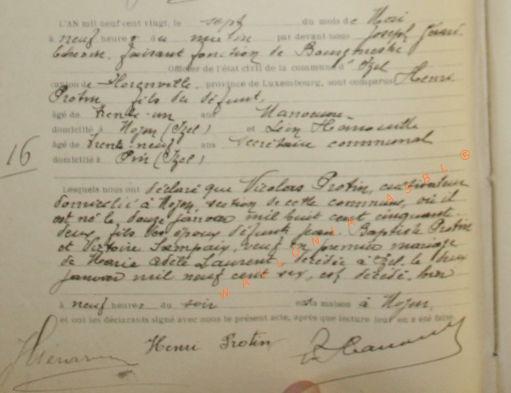 L'AN mil neuf cent vingt, le sept du mois de Mai
à neuf heures du matin par devant nous Joseph
faisant fonction de Bourgmestre
Officier de l'état civil de la commune d'Izel
canton de Florenville, province de Luxembourg, sont comparus Henri
Protin fils du défunt,
âgé de trente-un ans
domicilié à Moyen (Izel) et Léon
âgé de trente-neuf ans secrétaire communal
domicilié à Pin (Izel)
16
Lesquels nous ont déclaré que Nicolas Protin, cultivateur
domicilié à Moyen, section de cette commune, où il
est né le douze janvier mil huit cent cinquante
deux, fils des époux défunts Jean Baptiste Protin
et Victoire Lampaix, veuf en premier mariage
de Marie Adèle Laurent, décédée à Izel, le
janvier mil neuf cent six, est décédé, hier
à neuf heures du soir en sa maison à Moyen,
et ont les déclarants signé avec nous le présent acte, après que lecture leur en a été faite.
Henri Protin
WALLONIE ASBL ©